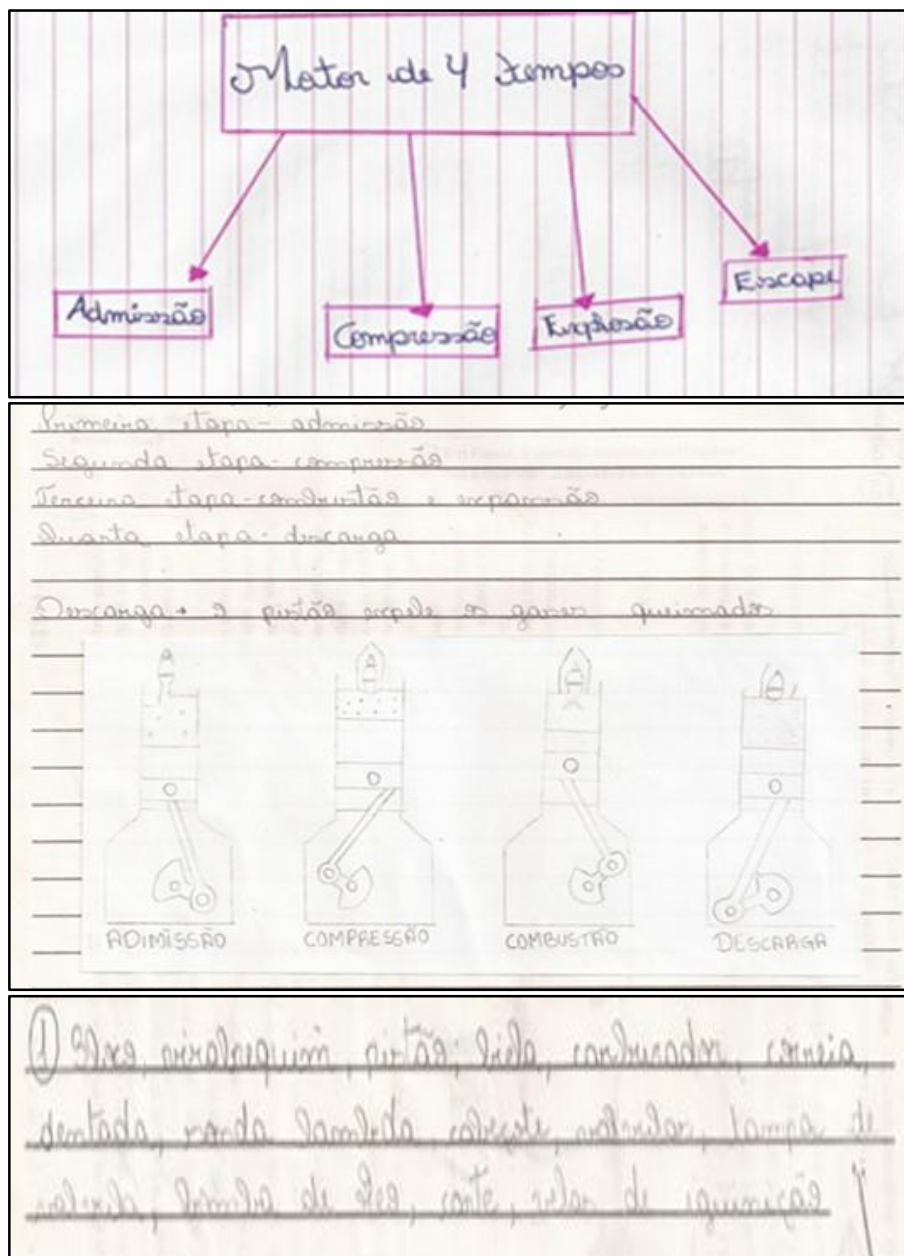 Motor de 4 tempos
Admissão
Compressão
Explosão
Escape
Primeira etapa - admissão
Segunda etapa - compressão
Terceira etapa - combustão e expansão
Quarta etapa - descarga
Descarga → o pistão expele os gases queimados
ADIMISSÃO
COMPRESSÃO
COMBUSTÃO
DESCARGA
① pistão, biela, carburador, correia,
dentada, sonda lambda cabeçote, tampa de
bomba de velas de